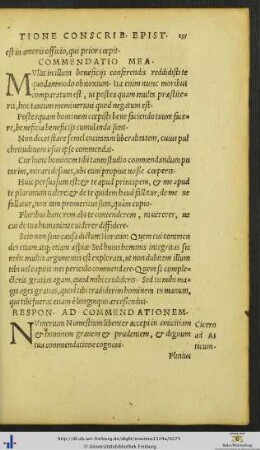 TIONE CONSCRIB. EPIST. 237
est in amoris officio, qui prior cœpit.
COMMENDATIO MEA.
MVltis in illum beneficijs conferendis reddidisti te
quodammodo obnoxium. Ita enim nunc moribus
comparatum est, ut postea quàm multa præstite-
ris, hoc tantum meminerint quod negatum est.
Posteaquam hominem cœpisti benefaciendo tuum face-
re, beneficia beneficijs cumulanda sunt.
Non decet stare semel incitatam liberalitatem, cuius pul
chritudinem usus ipse commendat.
Cur hunc hominem tibi tam studio commendandum pu
tarim, mirari desines, ubi eum propius nosse cœperis.
Huic persuasum est & te apud principem, & me apud
te plurimum ualere: & de te quidem haud fallitur, de me ne
fallatur, non tam promeritus sum, quàm cupio.
Pluribus hanc rem abs te contenderem, ni uererer, ne
cui de tua humanitate uiderer diffidere.
Scio non sine causa dictum Horatio: Quem cui commen
des etiam atq; etiam aspice. Sed huius hominis integritas sic
mihi multis argumentis est explorata, ut non dubitem illum
tibi uel capitis mei periculo commendare. Quem si comple-
cteris, gratias agam, quod mihi credideris. Sed tu mihi ma-
gis ages gratias, quod tibi tradiderim hominem in manum,
qui tibi fuerat etiam è longinquo arcessendus.
RESPON. AD COMMENDATIONEM.
NVmerium Numestium libenter accepi in amicitiam Cicero
& hominem grauem & prudentem, & dignum ad At
tua commendatione cognoui. ticum.
Plinius
http://dl.ub.uni-freiburg.de/diglit/erasmus1524a/0275
© Universitätsbibliothek Freiburg
Baden-Württemberg